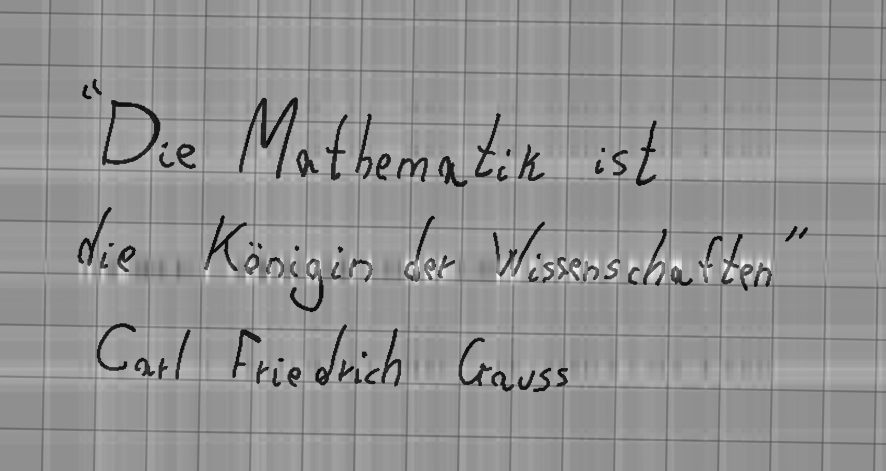 "Die Mathematik ist
die Königin der Wissenschaften"
Carl Friedrich Gauss